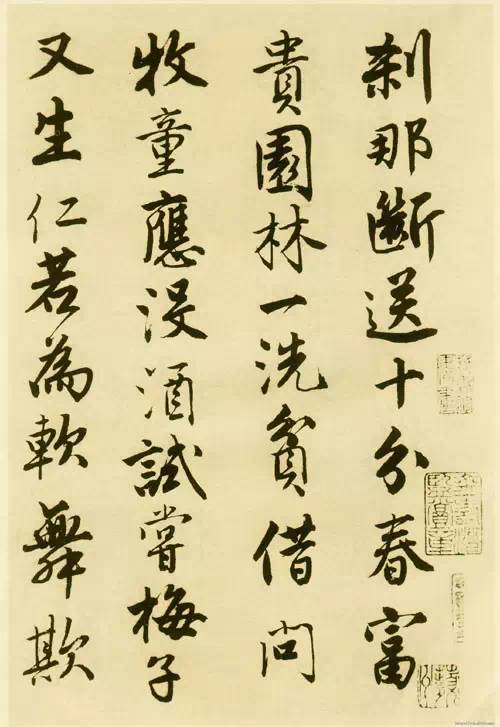 刹那斷送十分春富
貴園林一洗貧借問
牧童應没酒試嘗梅子
又生仁若為軟舞欺